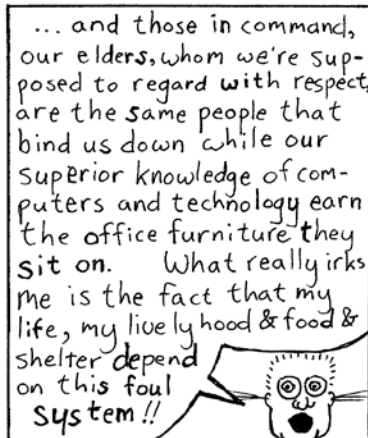 ... and those in command,
our elders, whom we're sup-
posed to regard with respect,
are the same people that
bind us down while our
superior knowledge of com-
puters and technology earn
the office furniture they
sit on. What really irks
me is the fact that my
life, my livelyhood & food &
shelter depend
on this foul
system!!